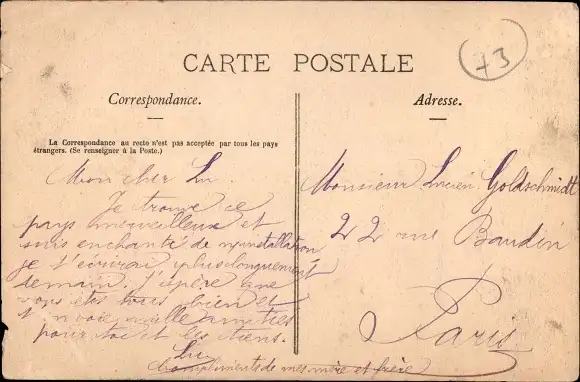 CARTE POSTALE
73
Correspondance.
Adresse.
La Correspondance au recto n'est pas acceptée par tous les pays
étrangers. (Se renseigner à la Poste.)
Mon cher Lu
Je trouve ce
pays merveilleux et
suis enchanté de m installation
je t'écrirai plus longuement
demain. J'espère que
vous êtes tous bien et
t'envoie mille amitiés
pour toi et les tiens.
Lu
Compliments de mes mère et frère
Monsieur Lucien Goldschmidt
22 rue Baudin
Paris